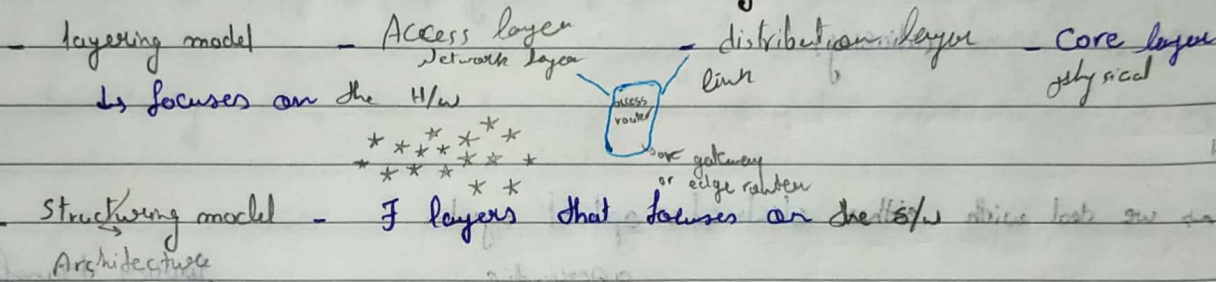 - layering model - Access layer - distribution layer - Core layer
Network layer link physical
↳ focuses on the H/w
access router
or gateway
or edge router
- Structuring model - 7 layers that focuses on the s/w
Architecture